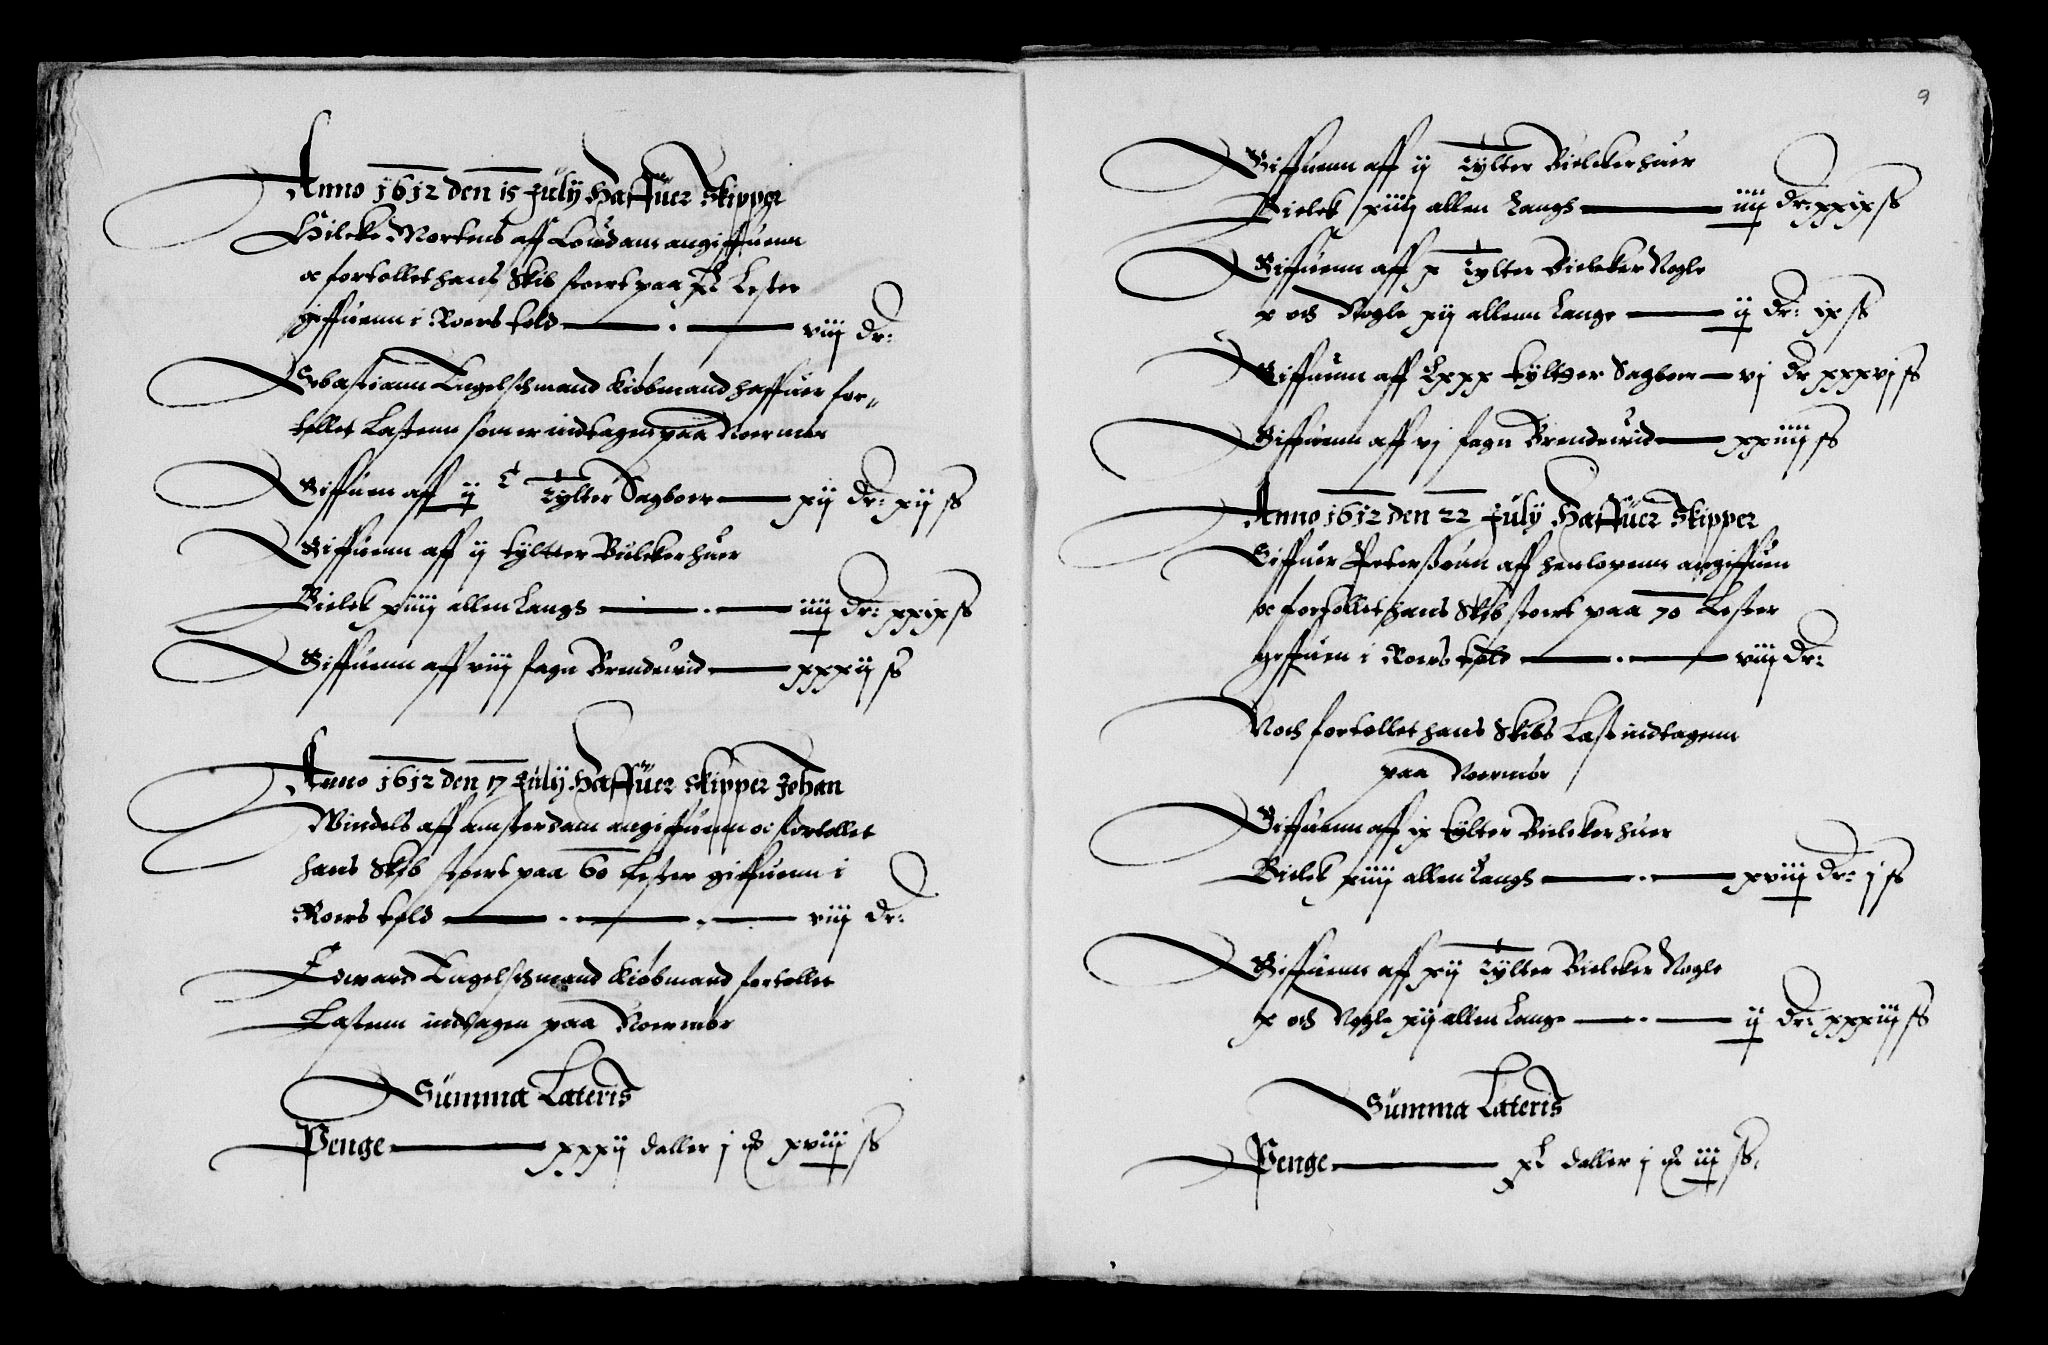 Anno 1612 den 15 Julÿ Haffüer Skipper
Hilcke Mortens aff angiffuenn
oc fortollet hans Skib stoert paa Lester
giffuenn i Roers told — . — viij dr:
Sebastiann Engelschmand Kiøbmand haffuer for„
tollet Lastenn som er indtagen paa Noermør
Giffuen aff ij C Tylter Sagboer — xij dr: xij ſs
Giffuenn aff ij tyltter Bielckerhuer
Bielck xiiij allen Langh — . — iiij dr: xxix ſs
Giffuenn aff viij fagn Brendeuid — xxxij ſs
Anno 1612 den 17 Julÿ Haffüer Skipper Johan
Windels aff amsterdam angiffuenn oc fortollet
hans Skib stoert paa 60 Lester giffuenn i
Roers told — . — . — viij dr:
Edward Engelschmand Kiøbmand fortollet
Lastenn indtagen paa Noermør
Summa Lateris
Penge — xxxij daller j xviij ſs
9
Giffuenn aff ij Tylter Bielckerhuer
Bielck xiiij allen Langh — iiij dr: xxix ſs
Giffuenn aff x Tylter Bielcker Nogle
x och Nogle xij allenn Lange — ij dr: ix ſs
Giffuenn aff Lxxx tyltter Sagboer — vj dr xxxvj ſs
Giffuenn aff vj fagn Brendeuid — xxiiij ſs
Anno 1612 den 22 Julÿ Haffüer Skipper
Siffuer Peterssøun aff henlopenn angiffuen
oc fortollet hans Skib stoert paa 70 Lester
geffuen i Roers told — . — viij dr:
Noch fortollet hans Skibs Last indtagenn
paa Noermør
Giffuenn aff ix tylter Bielckerhuer
Bielck xiiij allen Langh — . — xviij dr: j ſs
Giffuenn aff xij Tylter Bielcker Nogle
x och Nogle xij allen Lange — . — ij dr: xxxiij ſs
Summa Lateris
Penge — xL daller j iij ſs.